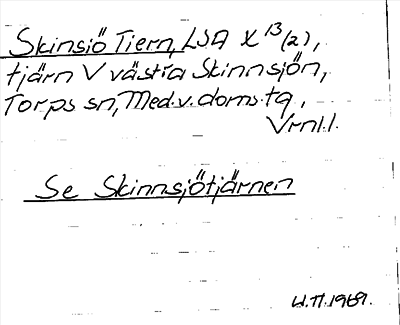 Skinsiö Tiern, LSA X 13/(2),
tjärn V västra Skinnsjön,
Torps sn, Med.v.doms.tg,
Vrnl.l.
Se Skinnsjötjärnen
U.H.1969.